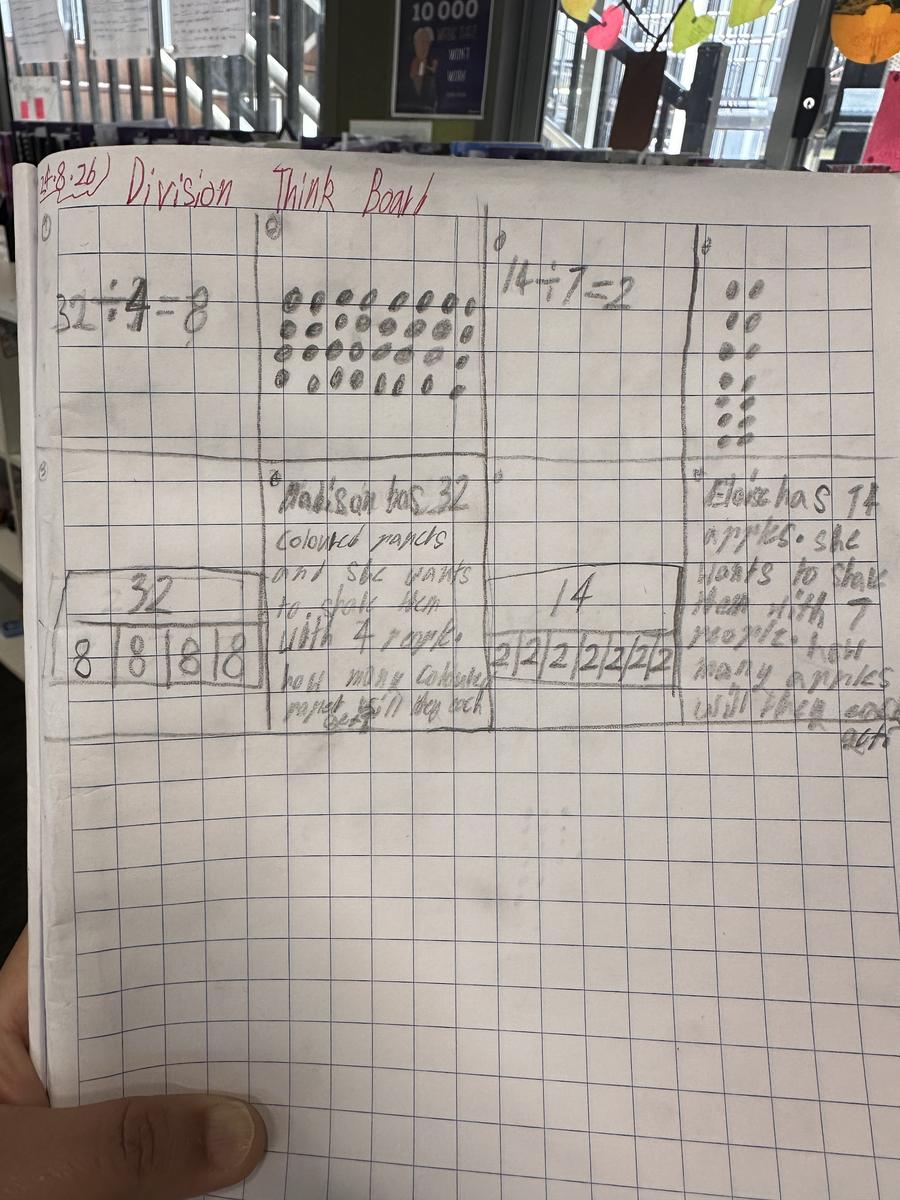 10 000
WON'T
WORK
24.8.26) Division Think Board
32÷4=8
14÷7=2
32
8 8 8 8
Madison has 32
coloured papers
and she wants
to shale them
with 4 people.
how many coloured
paper will they each
get?
14
2 2 2 2 2 2 2
Eloise has 14
apples. she
wants to shale
them with 7
people. how
many apples
will they each